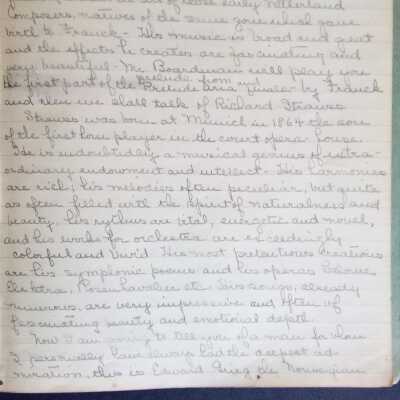 of those early Netherland
Composers, natives of the same [soil] that gave
birth to Franck - His music is broad and great
and the effects he creates are fascinating and
very beautiful - Mr Boardman will play you
the first part of the Prelude from Prelude aria and finale - by Franck
and then we shall talk of Richard Strauss
Strauss was born at Munich in 1864 the son
of the first horn player in the court opera house.
He is undoubtedly a musical genius of extra-
ordinary endowment and intellect - His harmonies
are rich; his melodies often peculiar, but quite
as often filled with the spirit of naturalness and
beauty, his rythms are vital, energetic and novel,
and his works for orchestra are exceedingly
colorful and vivid. His most pretentious creations
are his symphonic poems and his operas Salome
Elektra, Rosenkavalier etc. His songs, already
numerous, are very impressive and often of
fascinating beauty and emotional depth.
Now I am going to tell you of a man for whom
I personally have always had the deepest ad-
miration, this is Edward Grieg the Norwegian